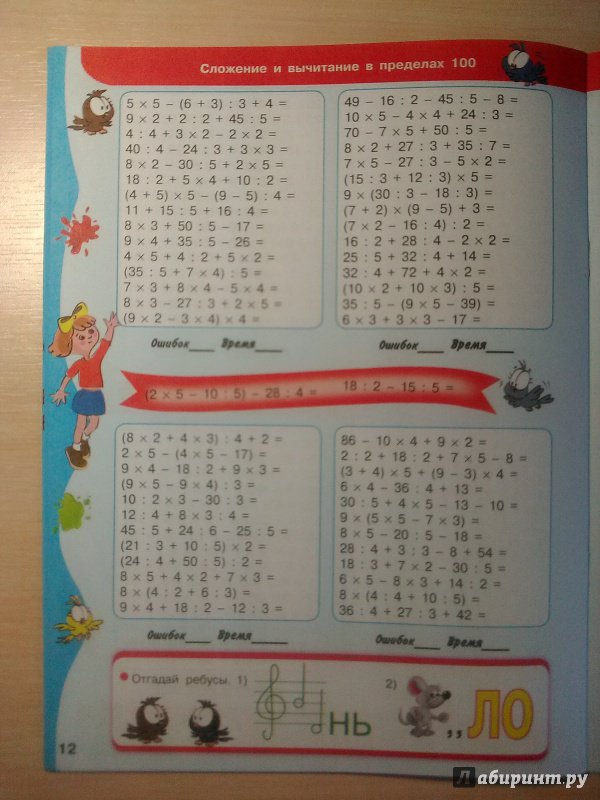 Сложение и вычитание в пределах 100
5 × 5 – (6 + 3) : 3 + 4 =
9 × 2 + 2 : 2 + 45 : 5 =
4 : 4 + 3 × 2 – 2 × 2 =
40 : 4 – 24 : 3 + 3 × 3 =
8 × 2 – 30 : 5 + 2 × 5 =
18 : 2 + 5 × 4 + 10 : 2 =
(4 + 5) × 5 – (9 – 5) : 4 =
11 + 15 : 5 + 16 : 4 =
8 × 3 + 50 : 5 – 17 =
9 × 4 + 35 : 5 – 26 =
4 × 5 + 4 : 2 + 5 × 2 =
(35 : 5 + 7 × 4) : 5 =
7 × 3 + 8 × 4 – 5 × 4 =
8 × 3 – 27 : 3 + 2 × 5 =
(9 × 2 – 3 × 4) × 4 =
Ошибок____ Время____
49 – 16 : 2 – 45 : 5 – 8 =
10 × 5 – 4 × 4 + 24 : 3 =
70 – 7 × 5 + 50 : 5 =
8 × 2 + 27 : 3 + 35 : 7 =
7 × 5 – 27 : 3 – 5 × 2 =
(15 : 3 + 12 : 3) × 5 =
9 × (30 : 3 – 18 : 3) =
(7 + 2) × (9 – 5) + 3 =
(7 × 2 – 16 : 4) : 2 =
16 : 2 + 28 : 4 – 2 × 2 =
25 : 5 + 32 : 4 + 14 =
32 : 4 + 72 + 4 × 2 =
(10 × 2 + 10 × 3) : 5 =
35 : 5 – (9 × 5 – 39) =
6 × 3 + 3 × 3 – 17 =
Ошибок____ Время____
(2 × 5 – 10 : 5) – 28 : 4 =
18 : 2 – 15 : 5 =
(8 × 2 + 4 × 3) : 4 + 2 =
2 × 5 – (4 × 5 – 17) =
9 × 4 – 18 : 2 + 9 × 3 =
(9 × 5 – 9 × 4) : 3 =
10 : 2 × 3 – 30 : 3 =
12 : 4 + 8 × 3 : 4 =
45 : 5 + 24 : 6 – 25 : 5 =
(21 : 3 + 10 : 5) × 2 =
(24 : 4 + 50 : 5) : 2 =
8 × 5 + 4 × 2 + 7 × 3 =
8 × (4 : 2 + 6 : 3) =
9 × 4 + 18 : 2 – 12 : 3 =
Ошибок____ Время____
86 – 10 × 4 + 9 × 2 =
2 : 2 + 18 : 2 + 7 × 5 – 8 =
(3 + 4) × 5 + (9 – 3) × 4 =
6 × 4 – 36 : 4 + 13 =
30 : 5 + 4 × 5 – 13 – 10 =
9 × (5 × 5 – 7 × 3) =
8 × 5 – 20 : 5 – 18 =
28 : 4 + 3 : 3 – 8 + 54 =
18 : 3 + 7 × 2 – 30 : 5 =
6 × 5 – 8 × 3 + 14 : 2 =
8 × (4 : 4 + 10 : 5) =
36 : 4 + 27 : 3 + 42 =
Ошибок____ Время____
Отгадай ребусы. 1)
нь
2)
,,ЛО
12
Лабиринт.ру